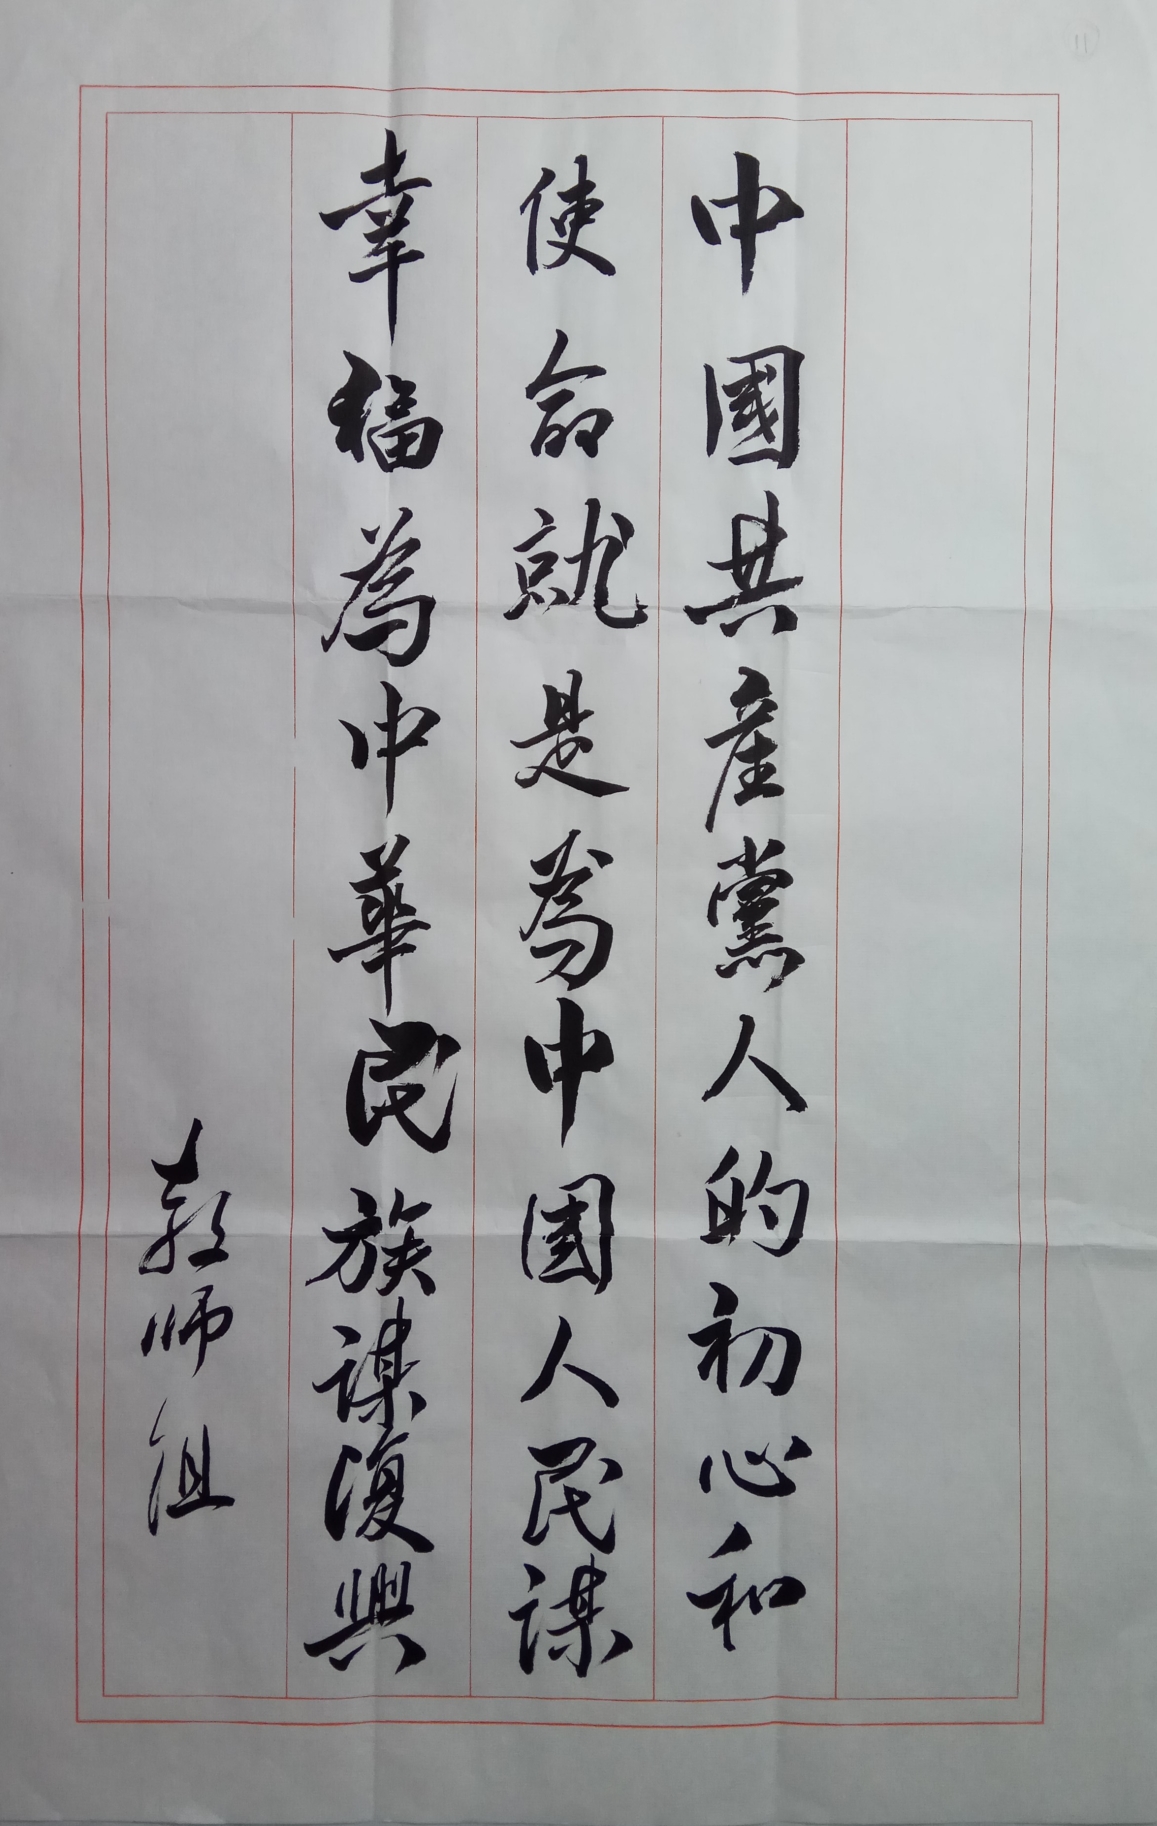 中國共產黨人的初心和
使命就是為中國人民謀
幸福為中華民族謀復興
教师组
11